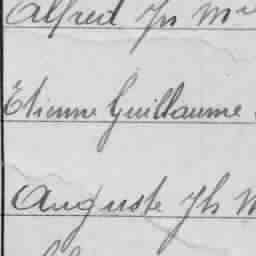 Alfred Jn
Etienne Guillaume
Auguste Jh